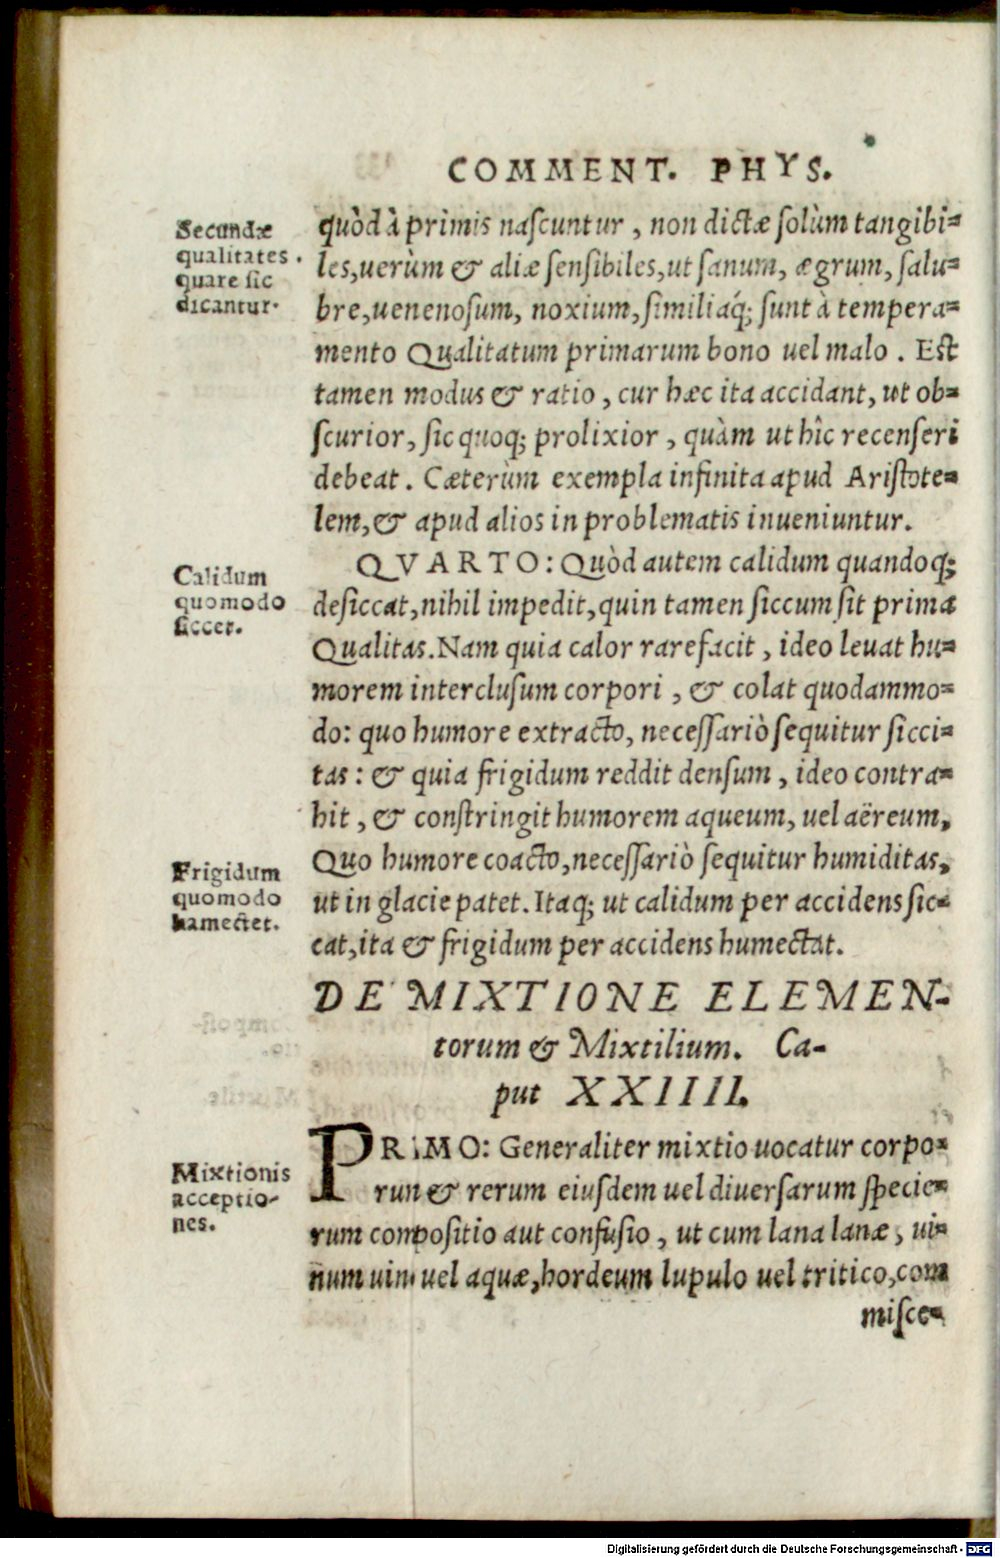 COMMENT. PHYS.
Secundæ
qualitates
quare sic
dicantur.
quòd à primis naſcuntur, non dictæ ſolùm tangibi-
les, uerùm & aliæ ſenſibiles, ut ſanum, ægrum, ſalu-
bre, uenenoſum, noxium, ſimiliaq́; ſunt à tempera-
mento Qualitatum primarum bono uel malo. Eſt
tamen modus & ratio, cur hæc ita accidant, ut ob-
ſcurior, ſic quoq; prolixior, quàm ut hîc recenſeri
debeat. Cæterùm exempla infinita apud Ariſtote-
lem, & apud alios in problematis inueniuntur.
Calidum
quomodo
ſiccet.
QVARTO: Quòd autem calidum quandoq;
deſiccat, nihil impedit, quin tamen ſiccum ſit prima
Qualitas. Nam quia calor rarefacit, ideo leuat hu-
morem intercluſum corpori, & colat quodammo-
do: quo humore extracto, neceſſariò ſequitur ſicci-
tas: & quia frigidum reddit denſum, ideo contra-
hit, & conſtringit humorem aqueum, uel aëreum,
Frigidum
quomodo
humectet.
Quo humore coacto, neceſſariò ſequitur humiditas,
ut in glacie patet. Itaq; ut calidum per accidens ſic-
cat, ita & frigidum per accidens humectat.
DE MIXTIONE ELEMEN-
torum & Mixtilium. Ca-
put XXIIII.
Mixtionis
acceptio-
nes.
PRIMO: Generaliter mixtio uocatur corpo-
rum & rerum eiuſdem uel diuerſarum ſpecie-
rum compoſitio aut confuſio, ut cum lana lanæ, ui-
num uini uel aquæ, hordeum lupulo uel tritico, com
miſce-
Digitalisierung gefördert durch die Deutsche Forschungsgemeinschaft - DFG